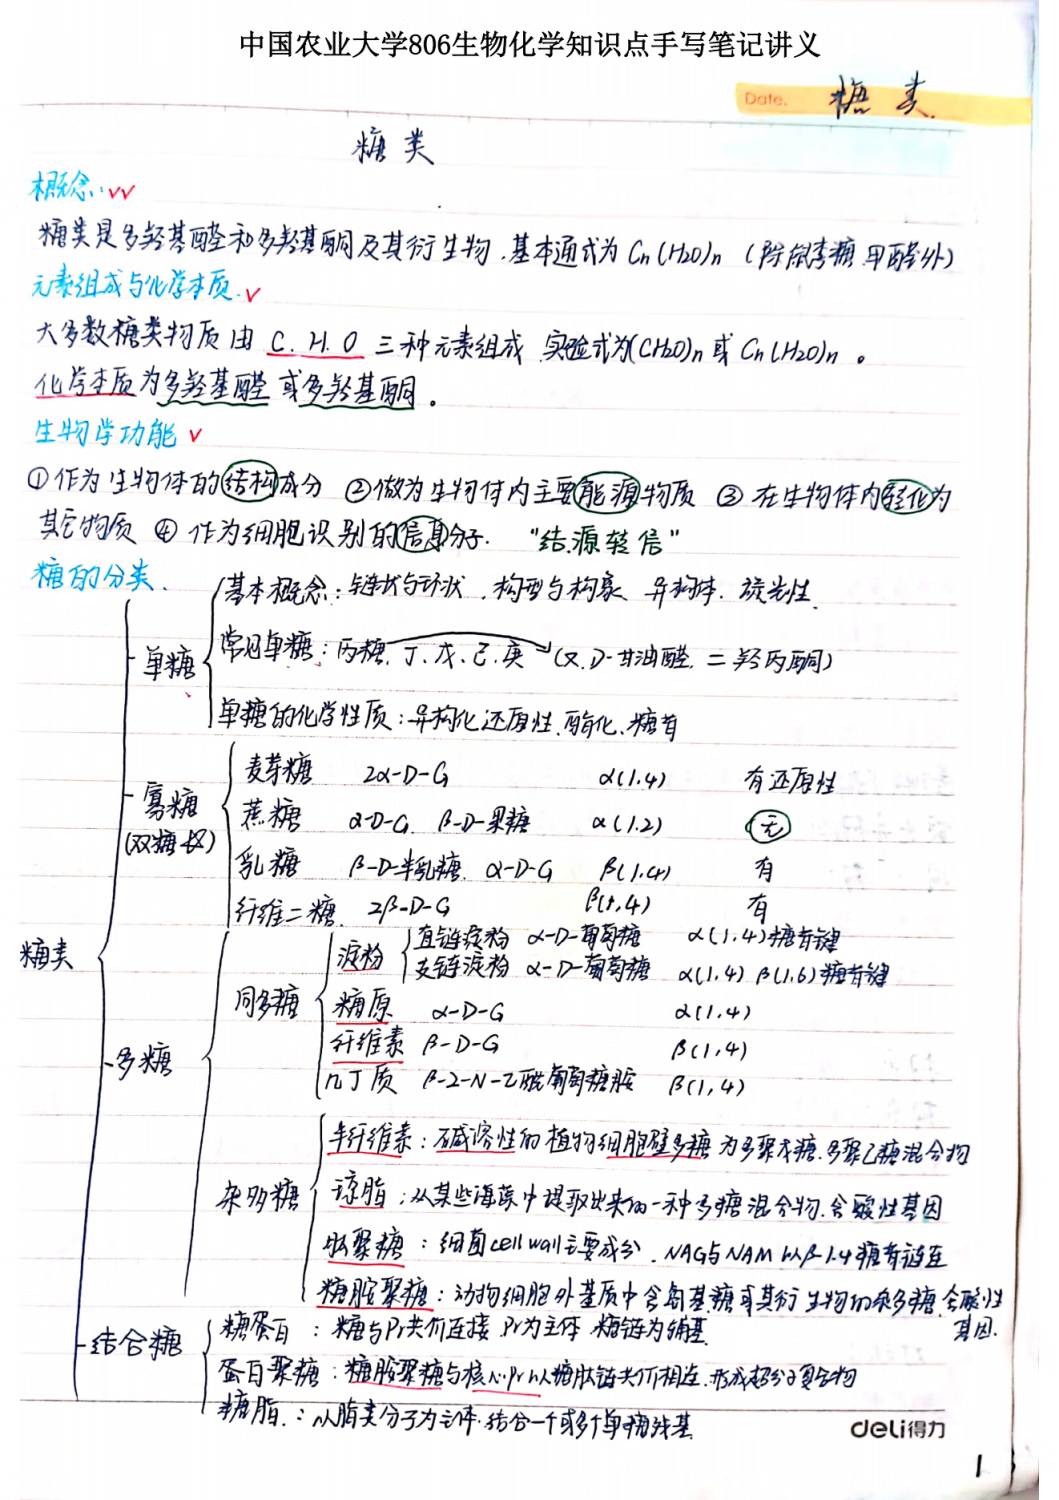 中国农业大学806生物化学知识点手写笔记讲义
Date. 糖类.
糖类
概念: √√
糖类是多羟基醛和多羟基酮及其衍生物.基本通式为 Cn(H2O)n (除鼠李糖.甲醛外)
元素组成与化学本质. √
大多数糖类物质由 C. H. O 三种元素组成 实验式为(CH2O)n 或 Cn(H2O)n 。
化学本质为多羟基醛 或多羟基酮 。
生物学功能 √
①作为生物体的结构成分 ②做为生物体内主要能源物质 ③在生物体内转化为
其它物质 ④作为细胞识别的信息分子. “结.源转信”
糖的分类.
糖类
单糖
基本概念: 链状与环状 . 构型与构象、异构体. 旋光性.
常见单糖: 丙糖. 丁、戊、己、庚 (又.D-甘油醛. 二羟丙酮)
单糖的化学性质: 异构化 还原性.酯化、糖苷
寡糖
(双糖 )
麦芽糖 2α-D-G α(1.4) 有还原性
蔗糖 α-D-G. β-D-果糖 α(1.2) 无
乳糖 β-D-半乳糖. α-D-G β(1.4) 有
纤维二糖. 2β-D-G β(1.4) 有
多糖
同多糖
淀粉
直链淀粉 α-D-葡萄糖 α(1.4)糖苷键
支链淀粉 α-D-葡萄糖 α(1.4) β(1.6)糖苷键
糖原 α-D-G α(1.4)
纤维素 β-D-G β(1,4)
几丁质 β-2-N-乙酰葡萄糖胺 β(1,4)
杂多糖
半纤维素: 碱溶性的植物细胞壁多糖 为多聚戊糖.多聚己糖混合物
琼脂 : 从某些海藻中提取出来的一种多糖混合物.含酸性基因
肽聚糖 : 细菌cell wall主要成分 . NAG与NAM 以β-1.4糖苷键连
糖胺聚糖: 动物细胞外基质中含氨基糖或其衍生物的杂多糖.含酸性
基因.
结合糖
糖蛋白 : 糖与Pr共价连接 Pr为主体 糖链为辅基.
蛋白聚糖: 糖胺聚糖与核心Pr以糖肽链共价相连.形成超分子复合物
糖脂. : 以脂类分子为主体.结合一个或多个单糖残基.
deli得力
1